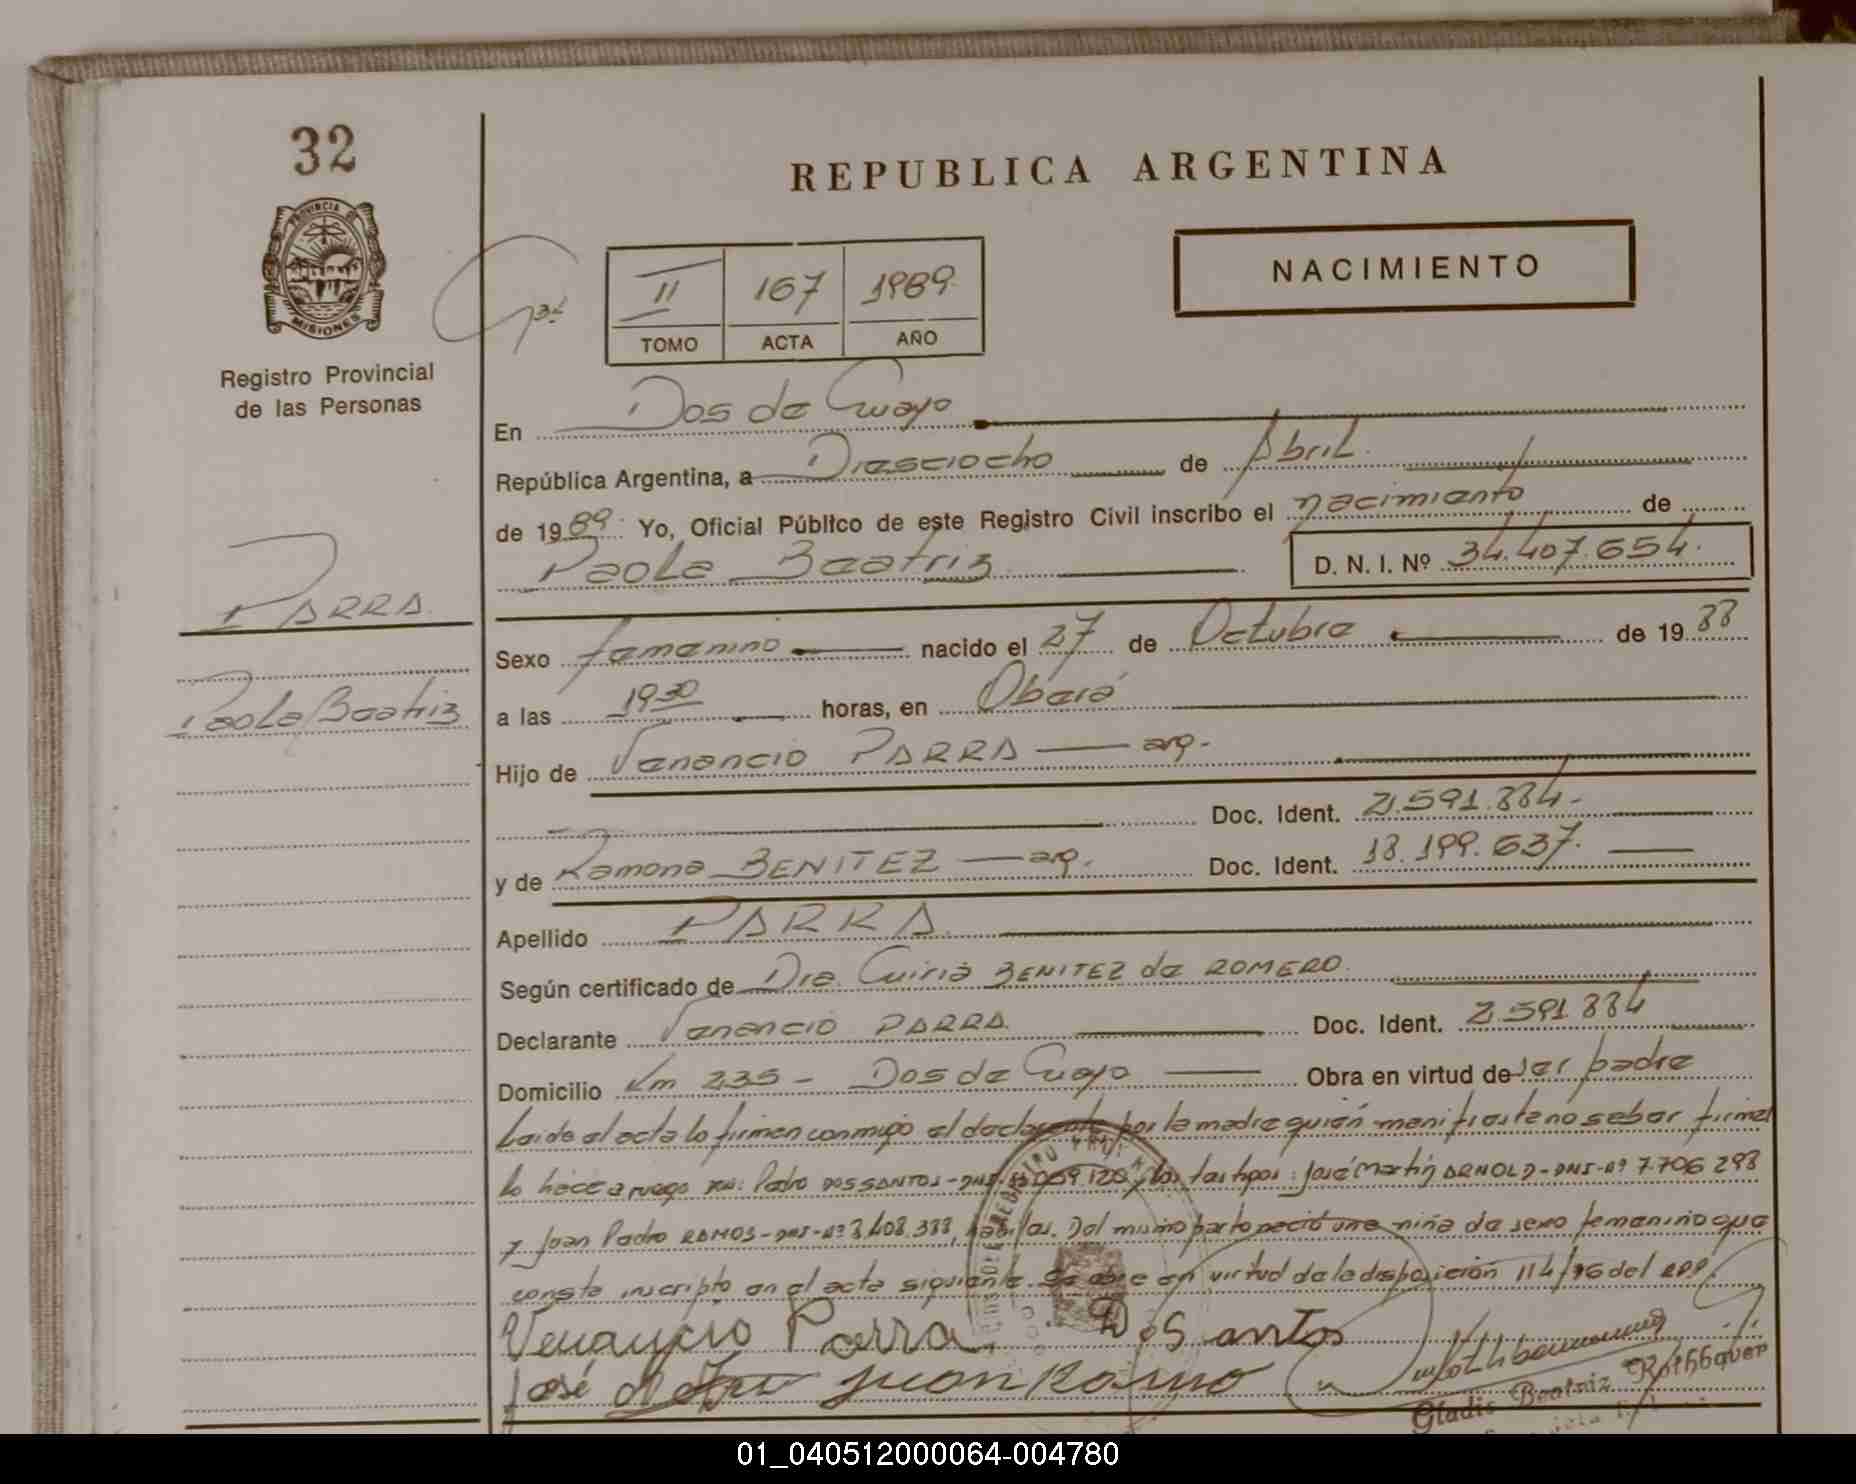 32
REPUBLICA ARGENTINA
PROVINCIA DE
MISIONES
Registro Provincial
de las Personas
NACIMIENTO
II 167 1989
TOMO ACTA AÑO
En Dos de Mayo
República Argentina, a Diesciocho de Abril
de 1989. Yo, Oficial Público de este Registro Civil inscribo el nacimiento de
Paola Beatriz D. N. I. Nº 34.407.654.
PARRA
Paola Beatriz
Sexo femenino nacido el 27 de Octubre de 19 88
a las 19 30 horas, en Oberá
Hijo de Venancio PARRA — arg.
Doc. Ident. 2.591.884.
y de Ramona BENITEZ — arg. Doc. Ident. 18.199.637.
Apellido PARRA
Según certificado de Dra. BENITEZ de ROMERO.
Declarante Venancio PARRA. Doc. Ident. 2.591.884
Domicilio Km 235 - Dos de Mayo Obra en virtud de ser padre
Leida el acta lo firman conmigo el declarante por la madre quién manifiesta no saber firmar
lo hace a ruego Pedro DOS SANTOS - DNI los testigos: José Martín ARNOLD - DNI - Nº 7.706.298
y Juan Pedro RAMOS - DNI - Nº 8.408.388, habiles. Del mismo parto nació una niña de sexo femenino que
consta inscripto en el acta siguiente. en virtud de la disposición 114/96 del RPP.
Venancio Parra Dos antos
José Juan Ramo
Gladis Beatriz Rothbauer
01_040512000064-004780